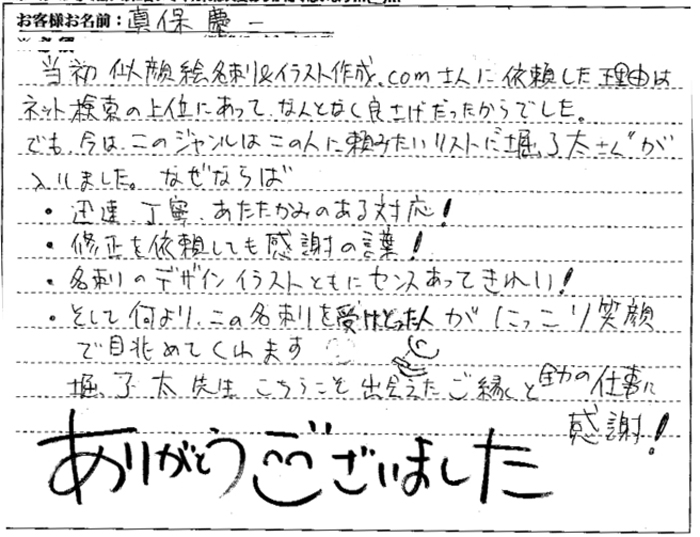 お客様お名前：真保慶一
当初 似顔絵名刺&イラスト作成.comさんに依頼した理由は
ネット検索の上位にあって、なんとなく良さげだったからでした。
でも、今は、このジャンルはこの人に頼みたいリストに"堀了太さん"が
入りました。なぜならば
・迅速、丁寧、あたたかみのある対応!
・修正を依頼しても感謝の言葉!
・名刺のデザインイラストともにセンスあってきれい!
・そして何より、この名刺を受けとった人がにっこり笑顔
で眺めてくれます
堀了太先生 こちらこそ出会えたご縁と全力の仕事に
感謝!
ありがとうございました